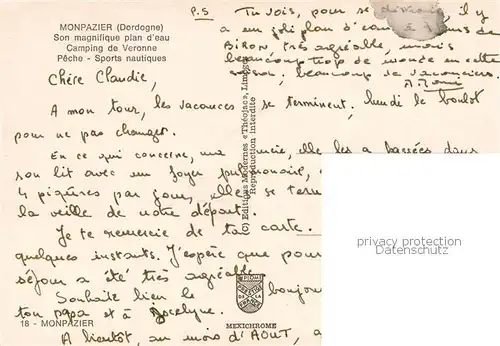 MONPAZIER (Dordogne)
Son magnifique plan d'eau
Camping de Veronne
Pêche - Sports nautiques
P.S Tu vois, pour se il y
a un joli plan d'eau à
BIRON, très agréable, mais
beaucoup trop de monde en cette
saison, beaucoup de vacanciers.
Chère Claudie,
A mon tour, les vacances se terminent, lundi le boulot
pour ne pas changer.
En ce qui concerne, ma elle les a passées dans
son lit avec un foyer pulmonaire,
4 piqûres par jour, elle se
la veille de notre départ.
Je te remercie de ta carte.
quelques instants. J'espère que pour
séjour a été très agréable.
Souhaite bien le bonjour
ton papa et à Jocelyne.
A bientôt, au mois d'AOUT, a
18 - MONPAZIER
MEXICHROME
(C) Editions Modernes «Théojac», Limoges
Reproduction interdite
privacy protection
Datenschutz